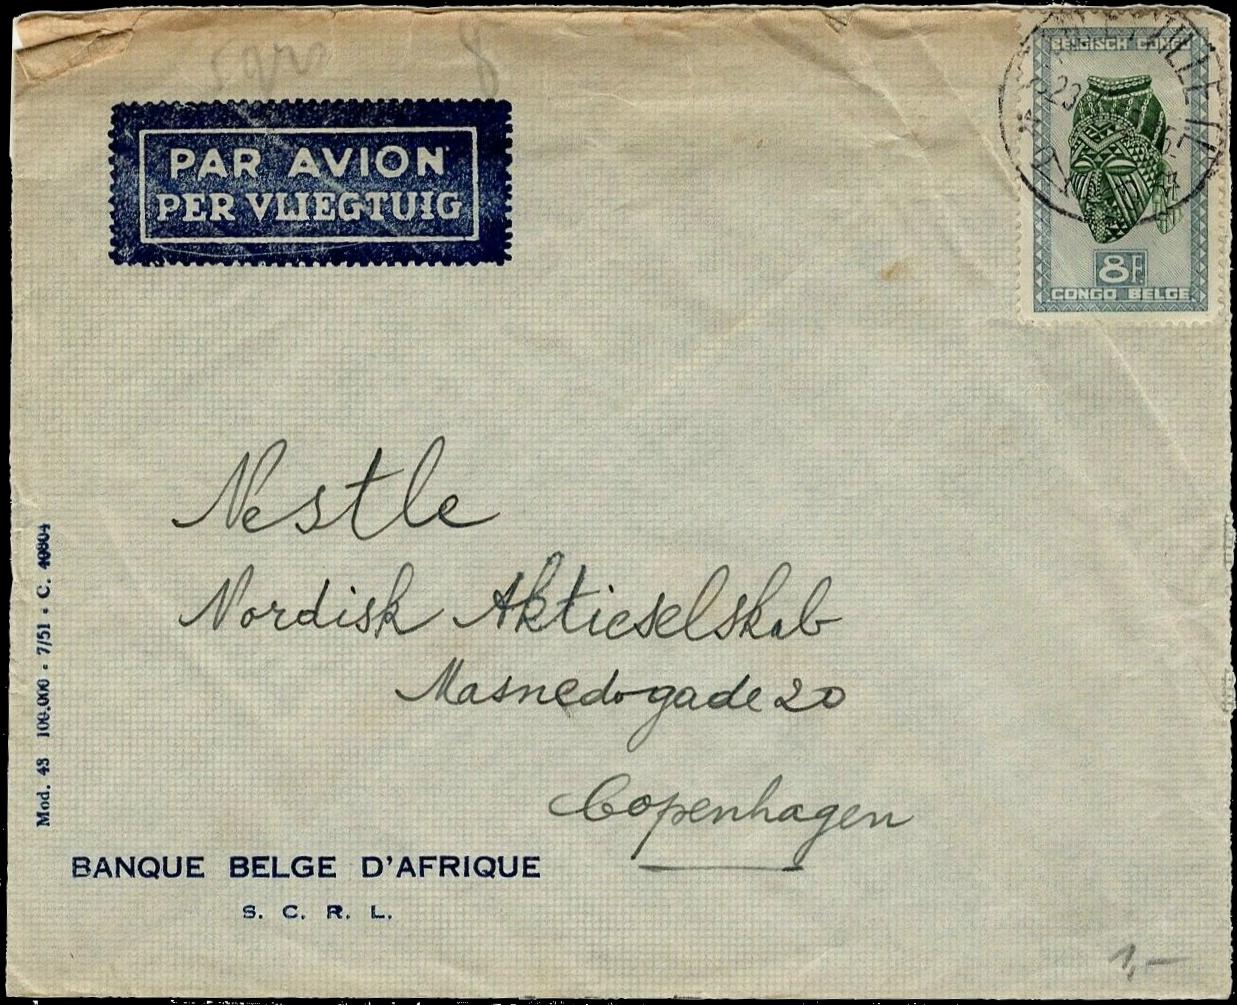 5gr 8
PAR AVION
PER VLIEGTUIG
BELGISCH CONGO
23
8F
CONGO BELGE
Nestle
Nordisk Aktieselskab
Masnedogade 20
Copenhagen
Mod. 43 100.000 - 7/51 - C. 49804
BANQUE BELGE D'AFRIQUE
S. C. R. L.
1,-